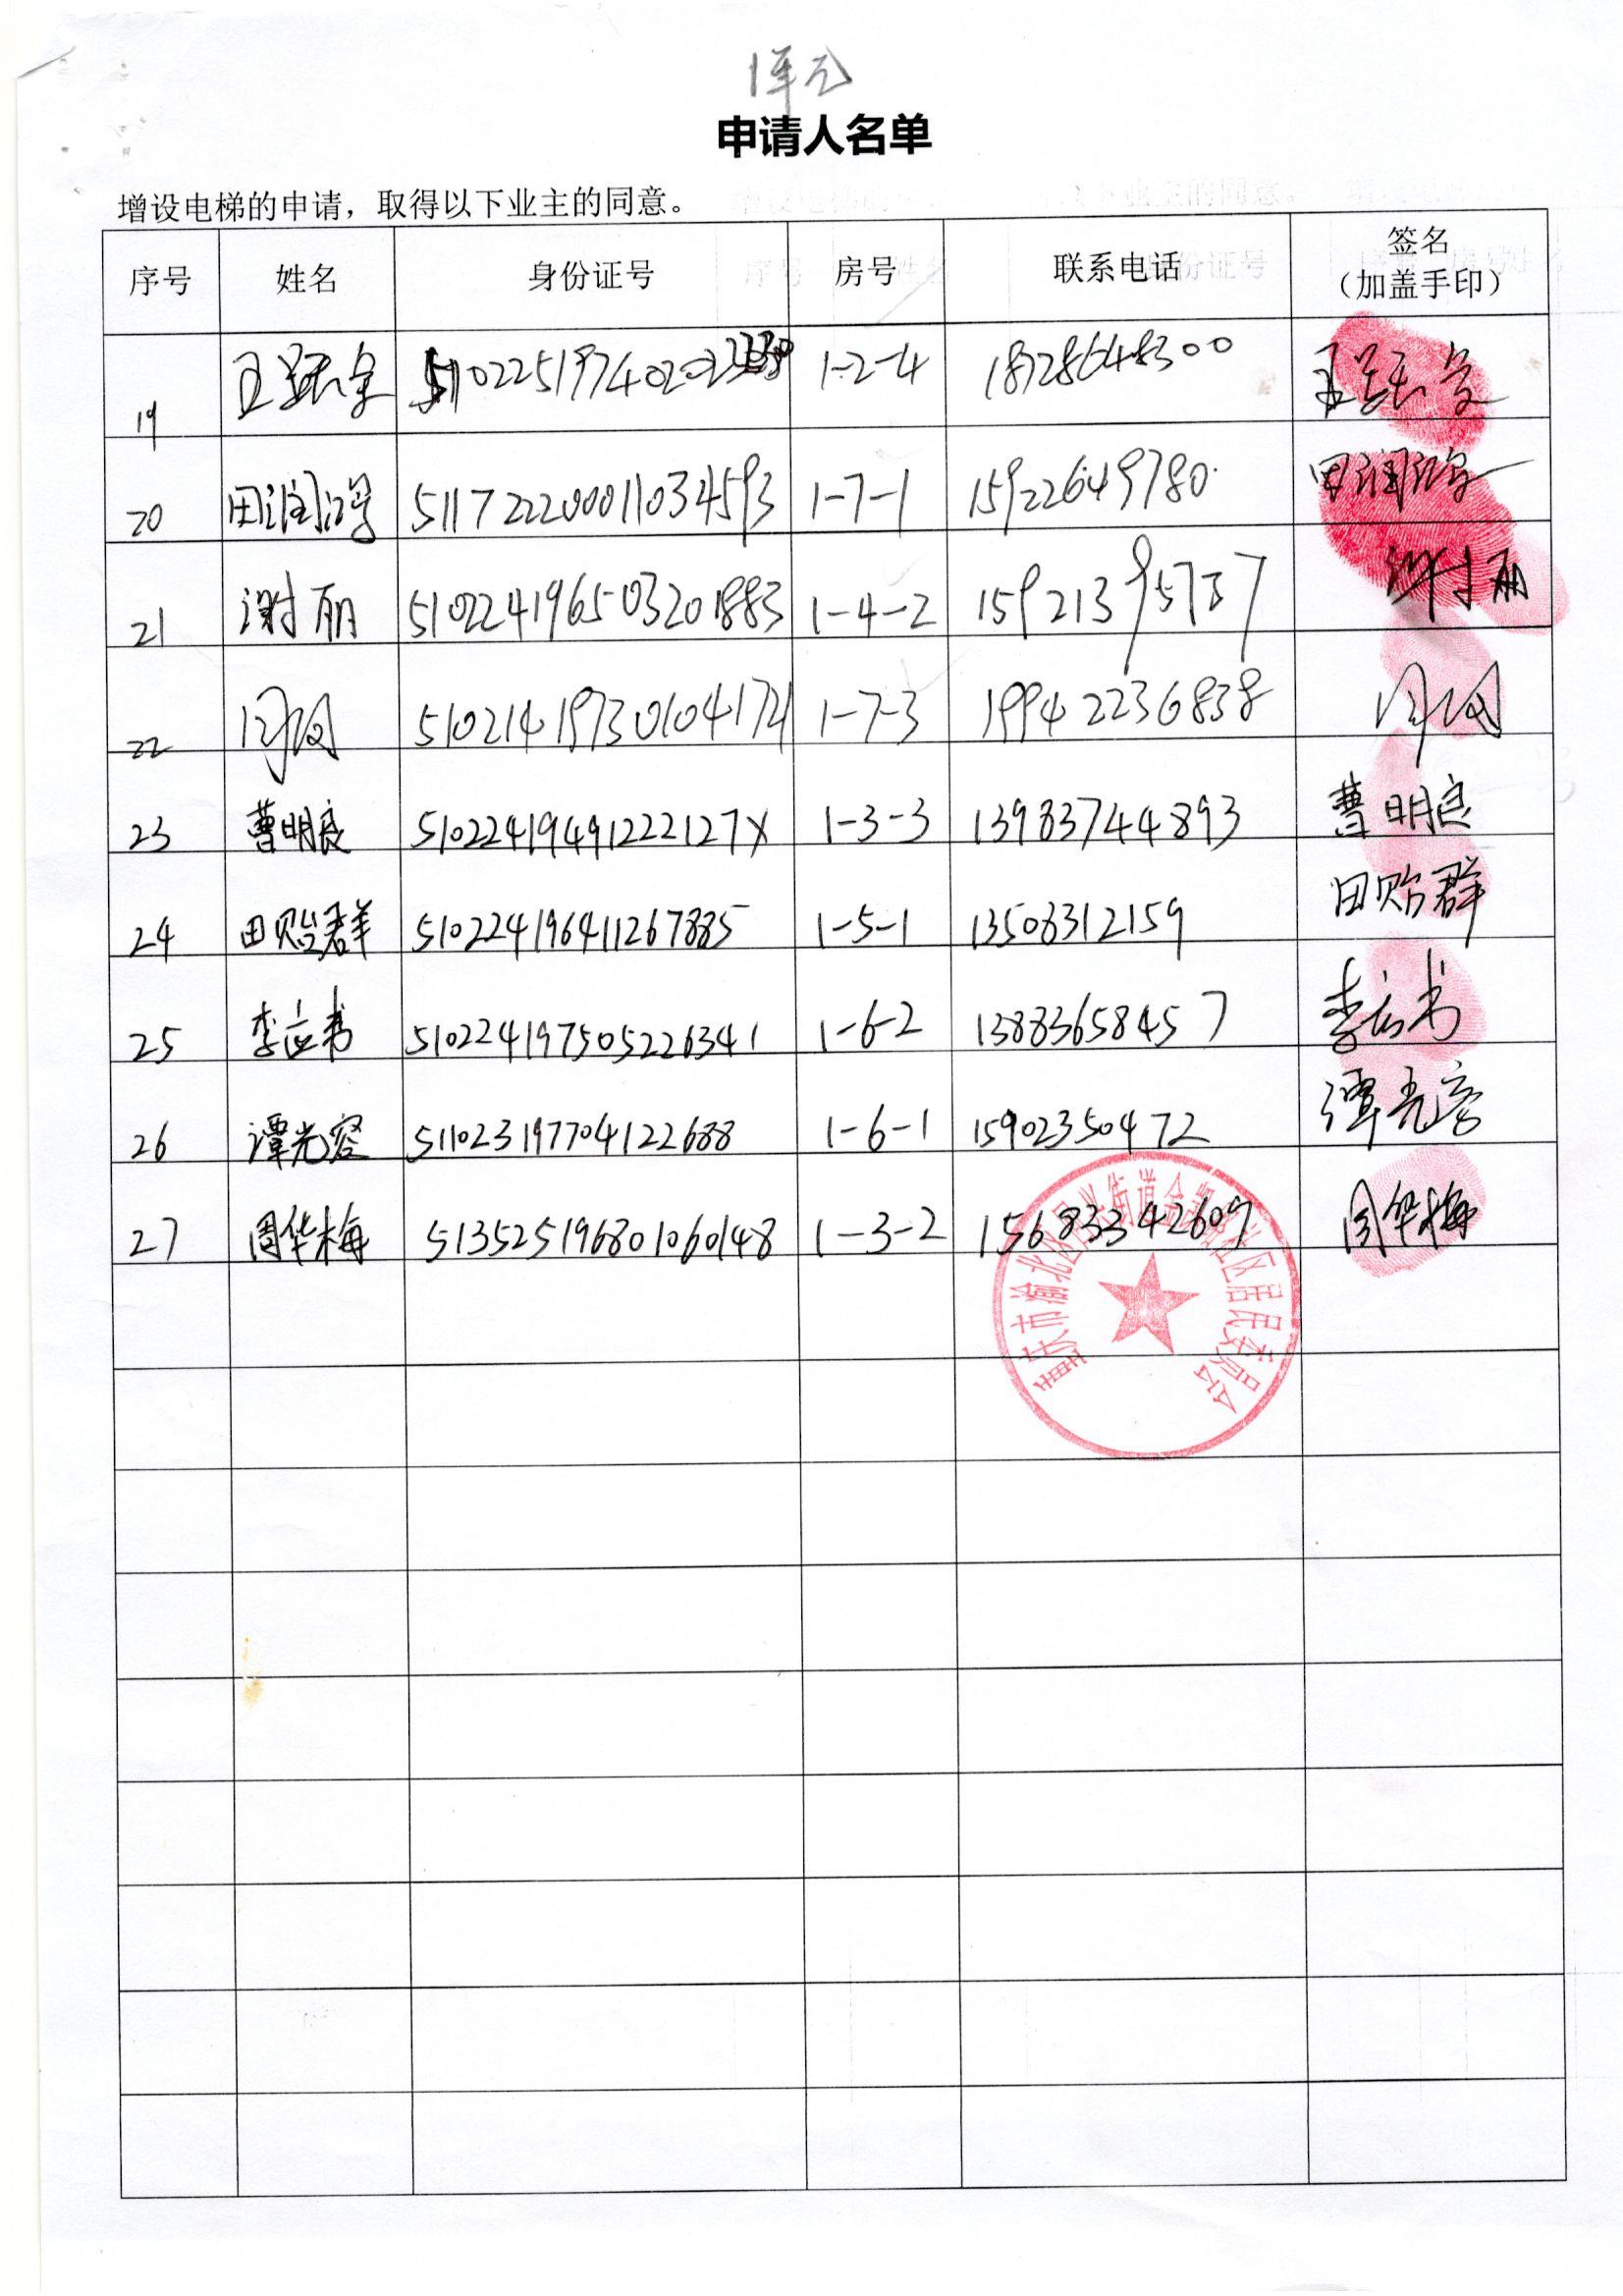 1单元
申请人名单
增设电梯的申请，取得以下业主的同意。
序号 姓名 身份证号 房号 联系电话 签名（加盖手印）
19 1-2-4 18728648300
20 511722200011034593 1-7-1 15922649780
21 谢丽 510224196503201883 1-4-2 谢丽
22 1-7-3 19942236838
23 曹明良 51022419491222127X 1-3-3 13983744893 曹明良
24 田贻群 510224196411267885 1-5-1 13508312159 田贻群
25 李应书 510224197505226341 1-6-2 13883658457 李应书
26 谭光容 511023197704122688 1-6-1 15902350472 谭光容
27 周华梅 513525196801060148 1-3-2 15683342609 周华梅
重庆市渝北区 街道 社区居民委员会